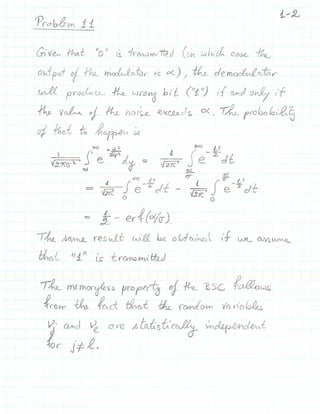 1-2
Problem 11
Given that "0" is transmitted (in which case the
output of the modulator is α), the demodulator
will produce the wrong bit ("1") if and only if
the value of the noise exceeds α. The probability
of that to happen is
1/√(2πσ²) ∫_α^∞ e^(-y²/2σ²) dy = 1/√(2π) ∫_(α/σ)^∞ e^(-t²/2) dt
= 1/√(2π) ∫_0^∞ e^(-t²/2) dt - 1/√(2π) ∫_0^(α/σ) e^(-t²/2) dt
= 1/2 - erf(α/σ)
The same result will be obtained if we assume
that "1" is transmitted
The memoryless property of the BSC follows
from the fact that the random variables
V_j and V_ℓ are statistically independent
for j≠ℓ.